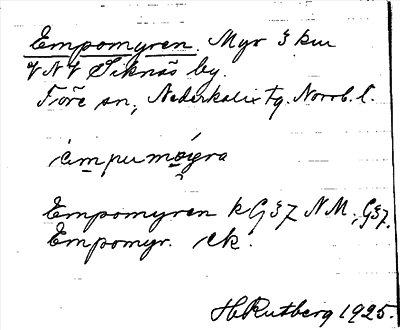 Empomyren. Myr 3 km
VNV Siknäs by.
Töre sn, Nederkalix tg. Norrb. l.
èmpumỳra
Empomyren kG37 NM, G37.
Empomyr. ek.
H Rutberg 1925.